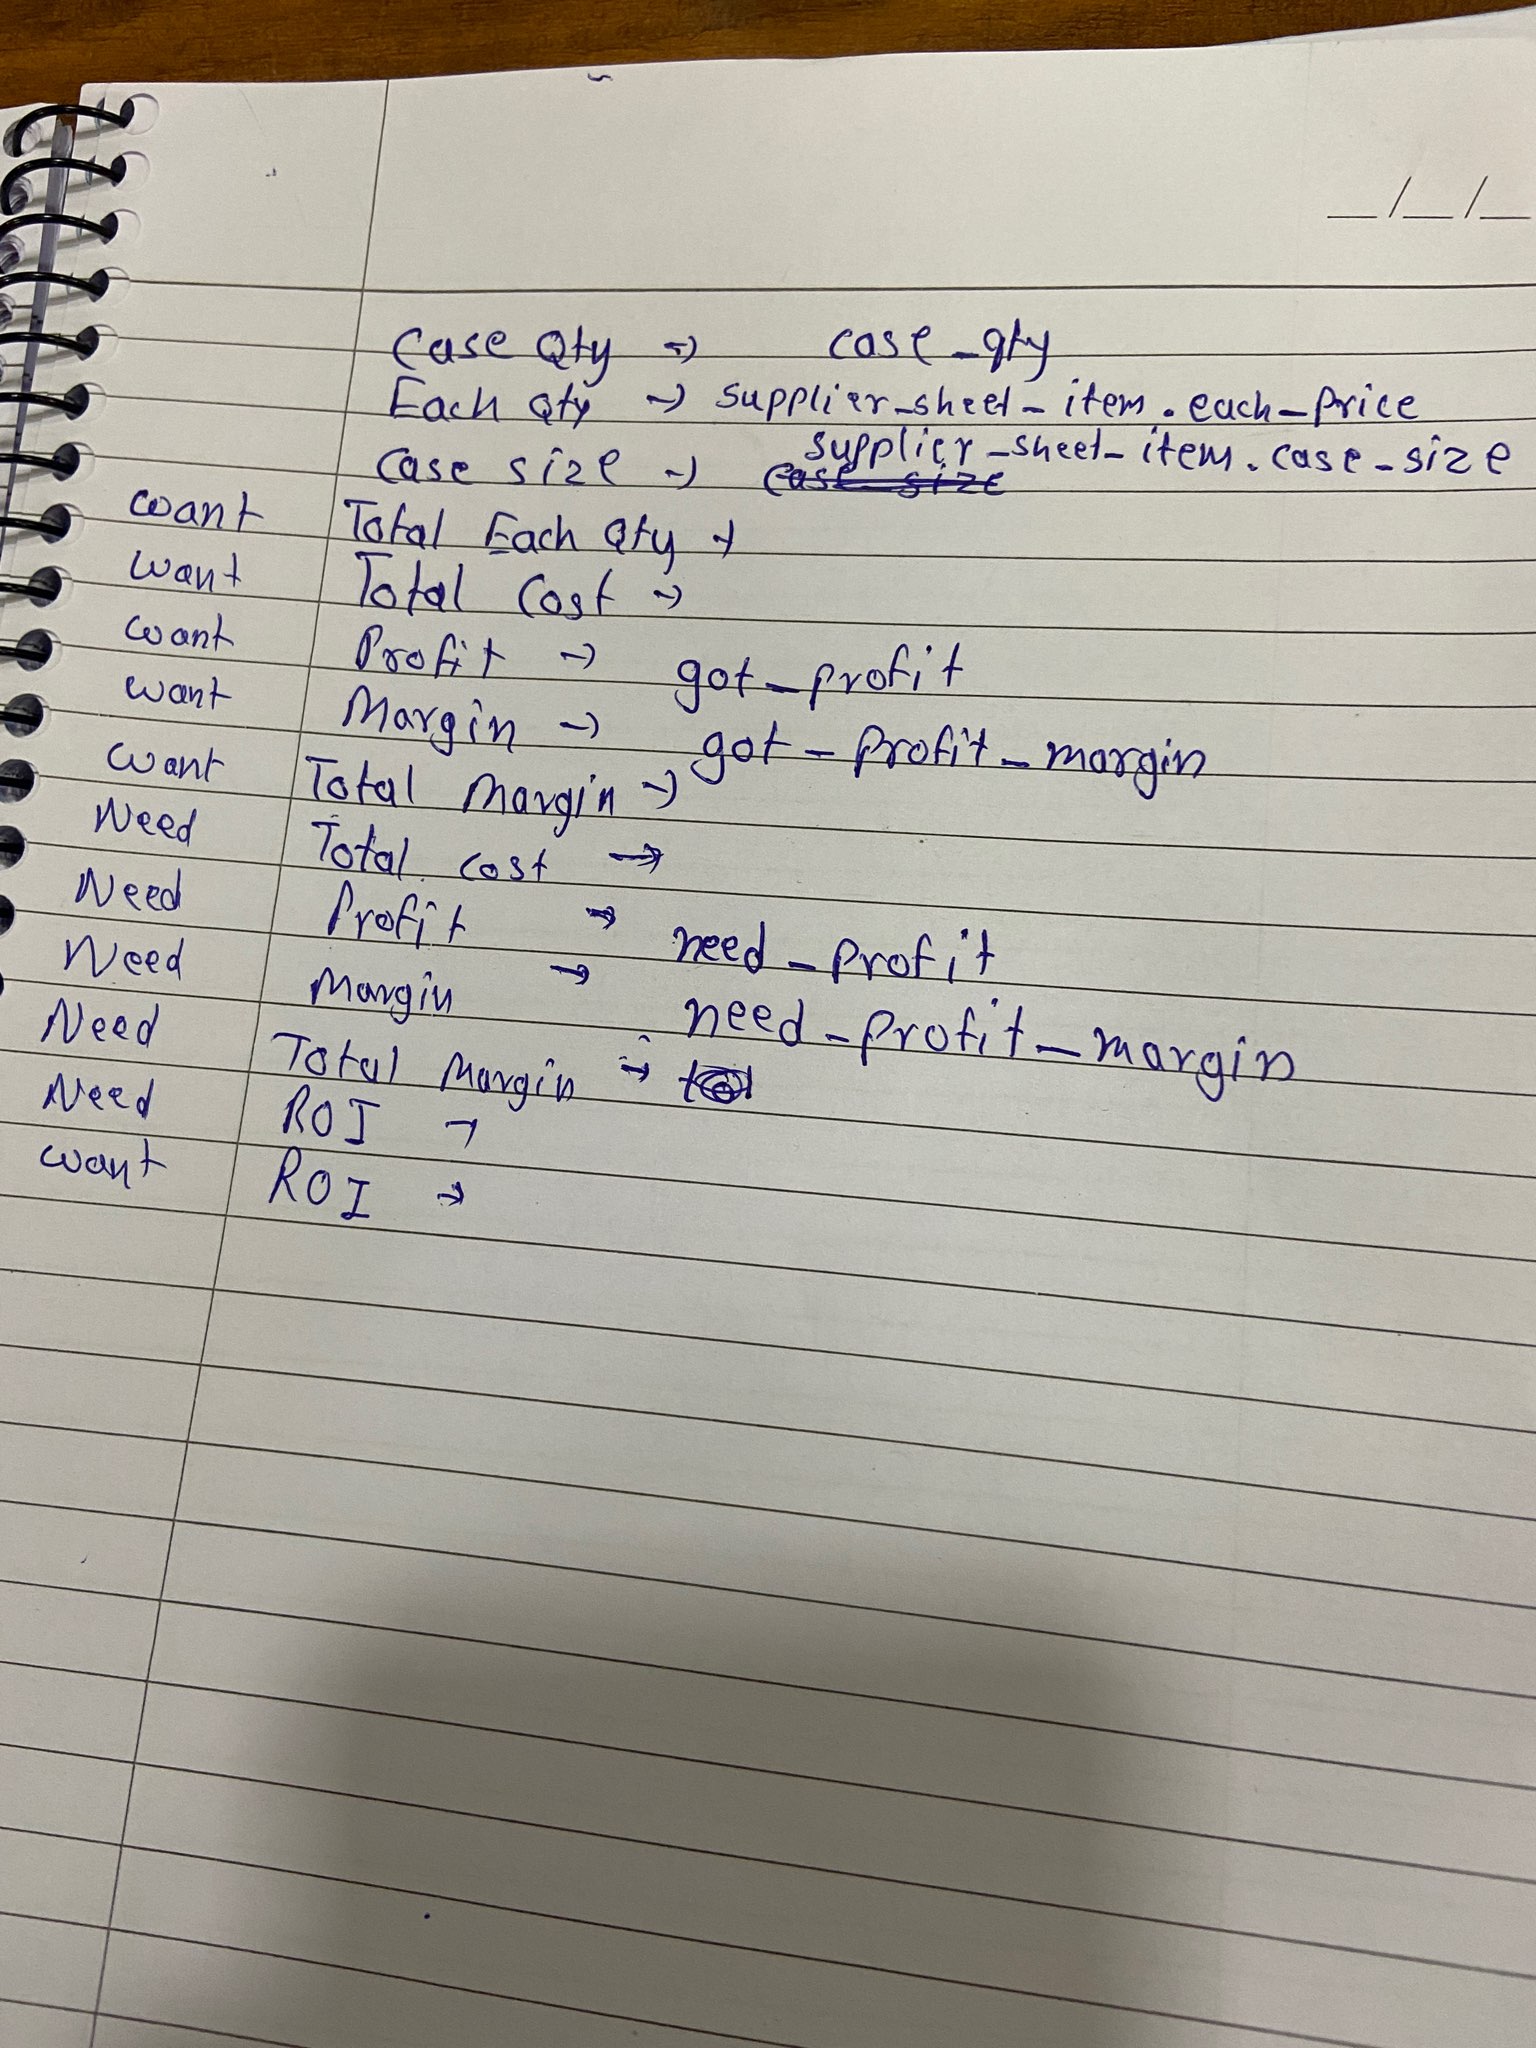 __/__/__
Case Qty → case_qty
Each Qty → supplier_sheet_item.each_price
case size → supplier_sheet_item.case_size
want Total Each Qty →
want Total Cost →
want Profit → got_profit
want Margin → got_profit_margin
want Total Margin →
Need Total cost →
Need Profit → need_profit
Need Margin → need_profit_margin
Need Total Margin →
Need ROI →
want ROI →